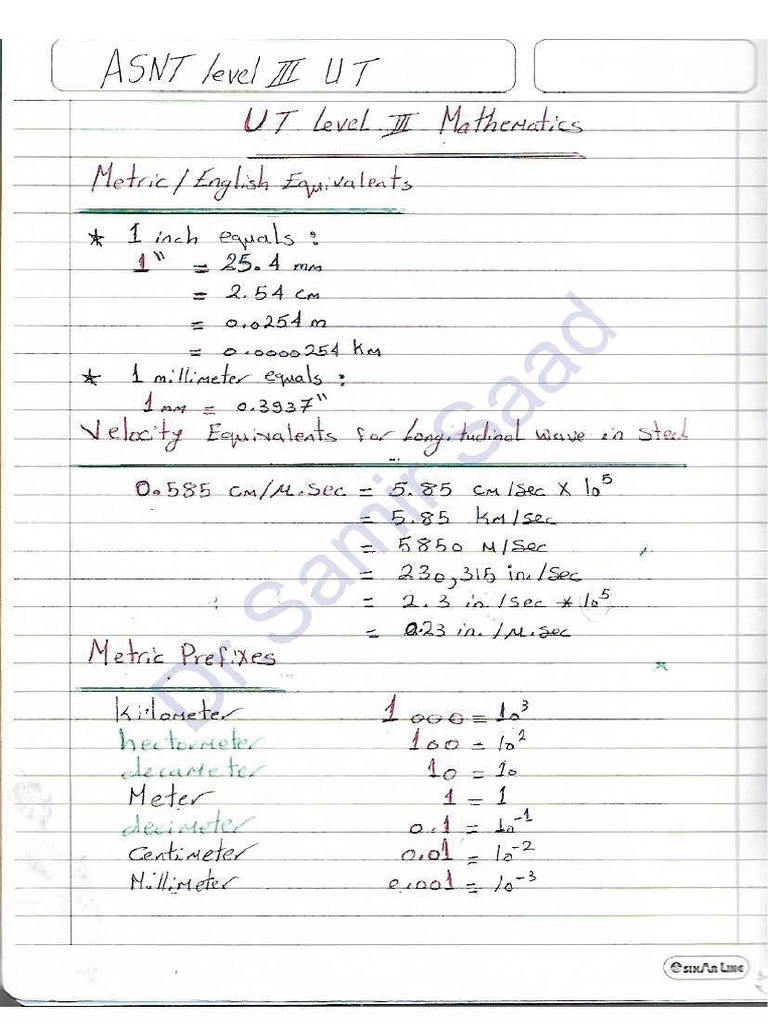 ASNT level III UT
UT Level III Mathematics
Metric/English Equivalents
* 1 inch equals :
1" = 25.4 mm
= 2.54 cm
= 0.0254 m
= 0.0000254 Km
* 1 millimeter equals :
1 mm = 0.3937"
Velocity Equivalents for Longitudinal wave in Steel
0.585 cm/M.sec = 5.85 cm/sec x 10⁵
= 5.85 Km/sec
= 5850 M/sec
= 230,315 in./sec
= 2.3 in./sec * 10⁵
= 0.23 in./M.sec
Metric Prefixes
kilometer 1 000 = 10³
hectormeter 100 = 10²
decameter 10 = 10
Meter 1 = 1
decimeter 0.1 = 10⁻¹
Centimeter 0.01 = 10⁻²
Millimeter 0.001 = 10⁻³
Dr Samir Saad
SINAR LINE